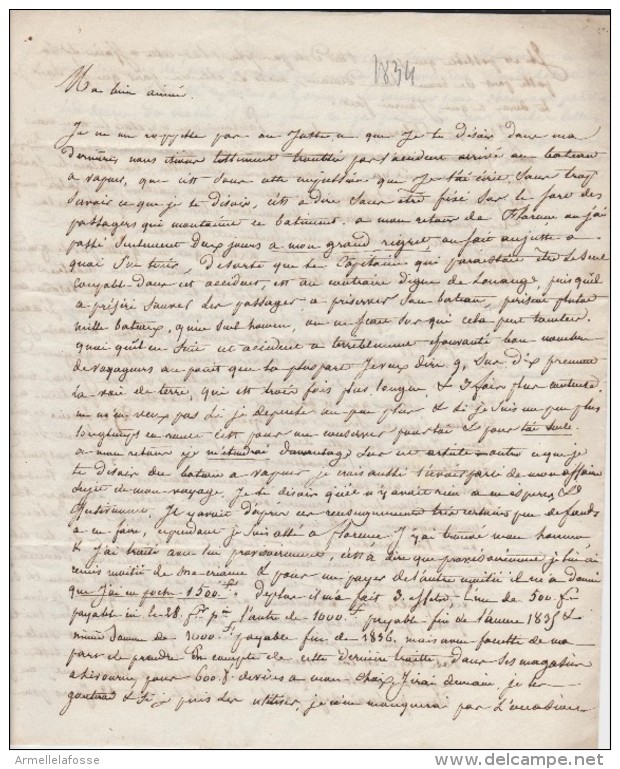 1834
Ma bien aimée.
Je ne me rappelle pas au juste ce que je te disais dans ma
dernière, nous étions tellement troublé par l'accident arrivé au bateau
à vapeur, que c'est sous cette que je t'ai écrit sans trop
savoir ce que je te disais, c'est à dire sans être fixé sur le sort des
passagers qui montaient ce batiment. a mon retour de Florence ou j'ai
passé seulement deux jours a mon grand regret, on sait au juste a
quoi s'en tenir, desorte que le Capitaine qui paraissait être le seul
coupable dans cet accident, est au contraire digne de louange, puisqu'il
a préféré sauver les passagers a préserver son bateau, périsse plutot
mille bateaux, qu'un seul homme, on ne sait sur qui cela peut tomber.
quoi qu'il en soit cet accident a terriblement épouvanté bon nombre
de voyageurs au point que la pluspart je veux dire 9, sur dix prennent
la voie de terre, qui est trois fois plus longue, & 3 fois plus couteuse.
ne m'en veux pas si je dépense un peu plus & si je suis un peu plus
longtemps en route c'est pour me conserver pour toi & pour toi seule.
a mon retour je m'étendrai davantage sur cet article outre ce que je
te disais du bateau a vapeur je crois aussi t'avoir parlé de mon affaire
sujet de mon voyage. Je te disais qu'il n'y avait rien a esperer
Il y avait d'après ces renseignements très certains peu de fonds
a en faire, cependant je suis allé a florence J'y ai trouvé mon homme
& j'ai traité avec lui provisoirement, c'est à dire que provisoirement je lui ai
remis moitié de ma créance & pour me payer de l'autre moitié il m'a donné
que j'ai en poche 1500 f. Deplus il m'a fait 3. effets, l'un de 500. f.
payable ici le 28. l'autre de 1000 f. payable fin de l'année 1835 &
de 1000 f. payable fin de 1836. mais avec faculté de ma
part de prendre En compte de cette dernière traite, dans ses magasins
a livourne, pour 600. f. a mon choix J'irai demain, je les
& si je puis les utiliser, je n'en manquerai pas l'occasion
Armellelafosse
www.delcampe.net